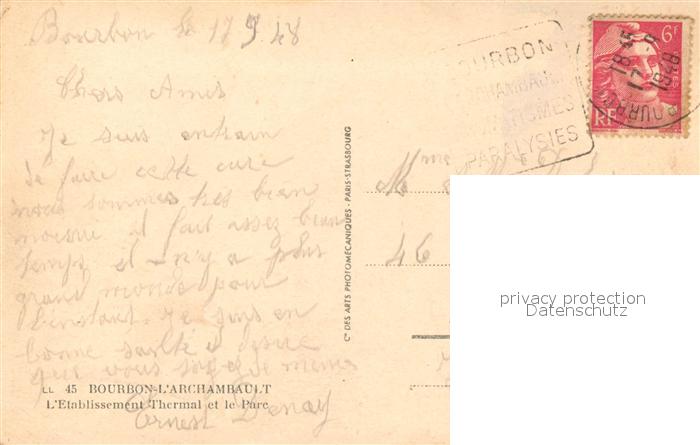 Bourbon le 17 9 48
Chers Amis
Je suis entrain
de faire cette cure
nous sommes très bien
il fait assez beau
temps il n'y a plus
grand monde pour
l'instant. Je suis en
bonne santé désire
que vous soyez de mêmes
Ernest
LL 45 BOURBON-L'ARCHAMBAULT
L'Etablissement Thermal et le Parc
CIE DES ARTS PHOTOMECANIQUES - PARIS-STRASBOURG
BOURBON
L'ARCHAMBAULT
PARALYSIES
6F
RF
POSTES
18 45
17 - 9
1948
BOURBON
46
privacy protection
Datenschutz